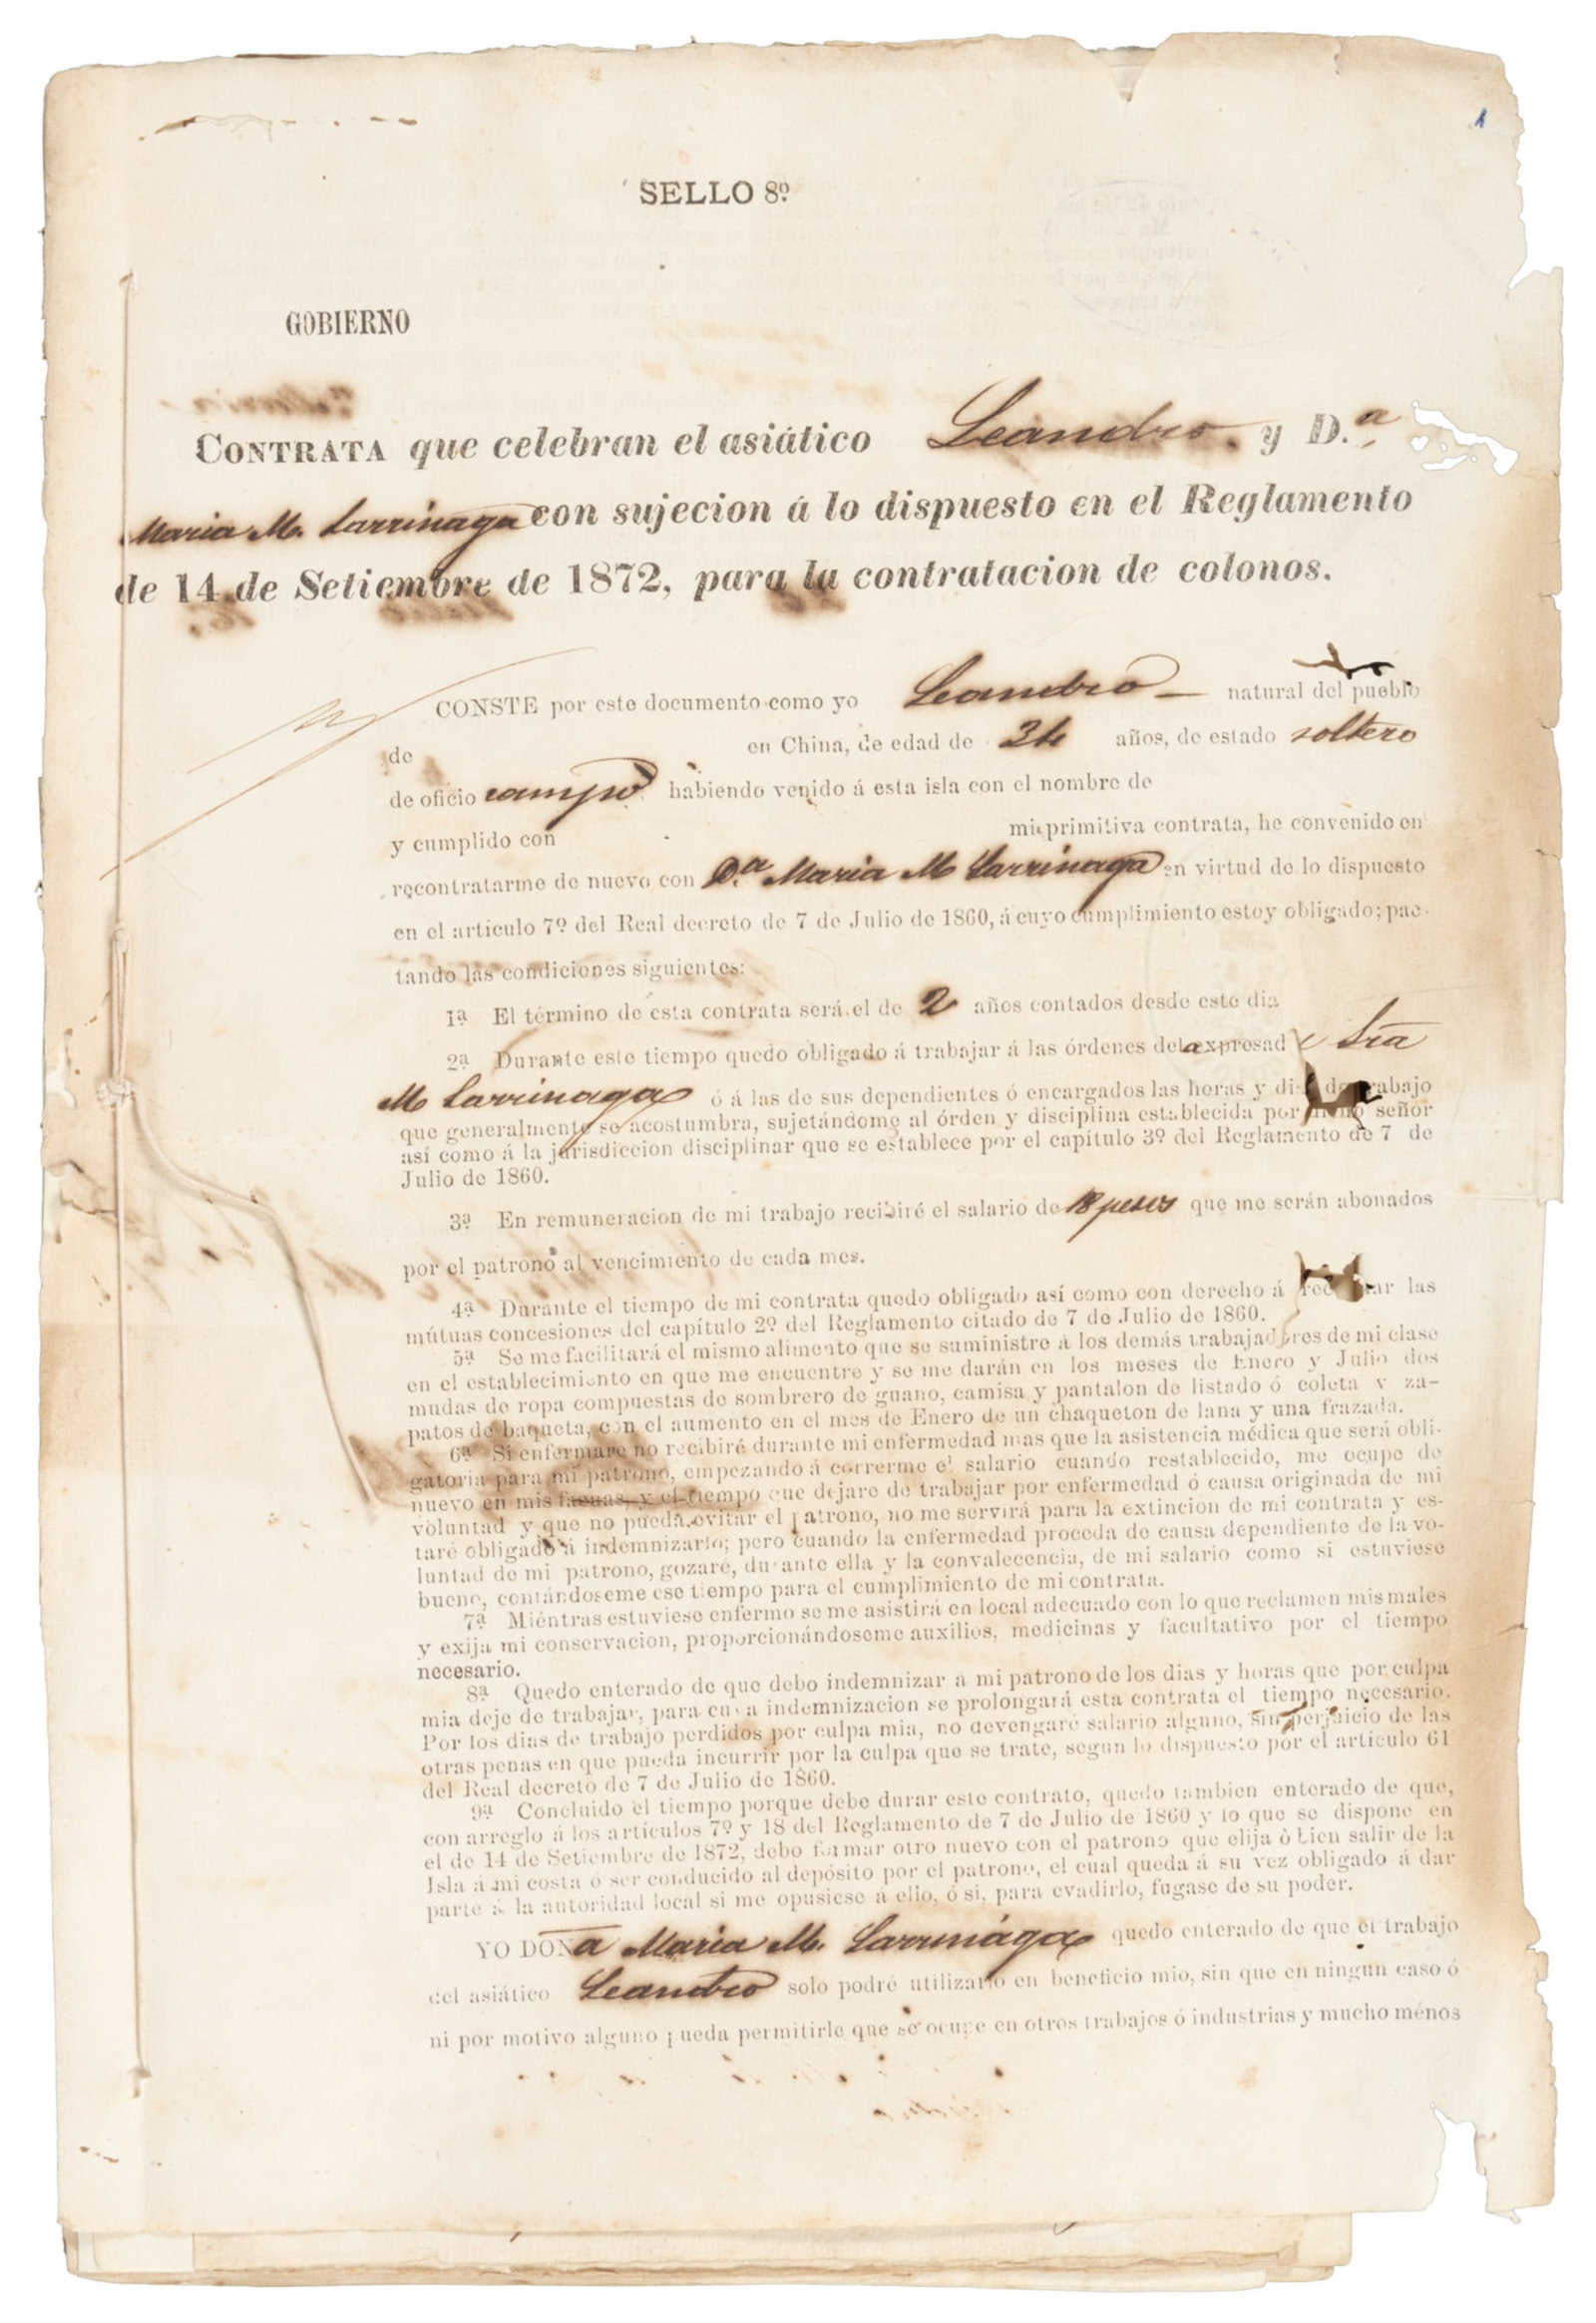 1
SELLO 8º
GOBIERNO
CONTRATA que celebran el asiático Leandro y D.ª
Maria M. Larrinaga con sujecion á lo dispuesto en el Reglamento
de 14 de Setiembre de 1872, para la contratacion de colonos.
CONSTE por este documento como yo Leandro natural del pueblo
de en China, de edad de años, de estado soltero
de oficio campo habiendo venido á esta isla con el nombre de
y cumplido con mi primitiva contrata, he convenido en
recontratarme de nuevo con D.ª Maria M Larrinaga en virtud de lo dispuesto
en el artículo 7º del Real decreto de 7 de Julio de 1860, á cuyo cumplimiento estoy obligado; pac-
tando las condiciones siguientes:
1ª El término de esta contrata será el de 2 años contados desde este dia
2ª Durante este tiempo quedo obligado á trabajar á las órdenes dela expresad Sra
M Larrinaga ó á las de sus dependientes ó encargados las horas y de trabajo
que generalmente se acostumbra, sujetándome al órden y disciplina establecida por señor
así como á la jurisdiccion disciplinar que se establece por el capítulo 3º del Reglamento de 7 de
Julio de 1860.
3ª En remuneracion de mi trabajo recibiré el salario de 18 pesos que me serán abonados
por el patrono al vencimiento de cada mes.
4ª Durante el tiempo de mi contrata quedo obligado así como con derecho á las
mútuas concesiones del capítulo 2º del Reglamento citado de 7 de Julio de 1860.
5ª Se me facilitará el mismo alimento que se suministre á los demás trabajadores de mi clase
en el establecimiento en que me encuentre y se me darán en los meses de Enero y Julio dos
mudas de ropa compuestas de sombrero de guano, camisa y pantalon de listado ó coleta y za-
patos de baqueta, con el aumento en el mes de Enero de un chaqueton de lana y una frazada.
6ª Si enfermare no recibiré durante mi enfermedad mas que la asistencia médica que será obli-
gatoria para mi patrono, empezando á correrme el salario cuando restablecido, me ocupe de
nuevo en mis faenas, y el tiempo que dejare de trabajar por enfermedad ó causa originada de mi
voluntad y que no pueda evitar el patrono, no me servirá para la extincion de mi contrata y es-
taré obligado á indemnizarlo; pero cuando la enfermedad proceda de causa dependiente de la vo-
luntad de mi patrono, gozaré, durante ella y la convalecencia, de mi salario como si estuviese
bueno, contándoseme ese tiempo para el cumplimiento de mi contrata.
7ª Miéntras estuviese enfermo se me asistirá en local adecuado con lo que reclamen mis males
y exija mi conservacion, proporcionándoseme auxilios, medicinas y facultativo por el tiempo
necesario.
8ª Quedo enterado de que debo indemnizar á mi patrono de los dias y horas que por culpa
mia deje de trabajar, para cuya indemnizacion se prolongará esta contrata el tiempo necesario.
Por los dias de trabajo perdidos por culpa mia, no devengaré salario alguno, sin perjuicio de las
otras penas en que pueda incurrir por la culpa que se trate, segun lo dispuesto por el artículo 61
del Real decreto de 7 de Julio de 1860.
9ª Concluido el tiempo porque debe durar este contrato, quedo tambien enterado de que,
con arreglo á los artículos 7º y 18 del Reglamento de 7 de Julio de 1860 y lo que se dispone en
el de 14 de Setiembre de 1872, debo formar otro nuevo con el patrono que elija ò bien salir de la
Isla á mi costa ó ser conducido al depósito por el patrono, el cual queda á su vez obligado á dar
parte á la autoridad local si me opusiese á ello, ó si, para evadirlo, fugase de su poder.
YO DONa Maria M. Larrinága quedo enterado de que el trabajo
del asiático Leandro solo podré utilizarlo en beneficio mio, sin que en ningun caso ó
ni por motivo alguno pueda permitirle que se ocupe en otros trabajos ó industrias y mucho ménos